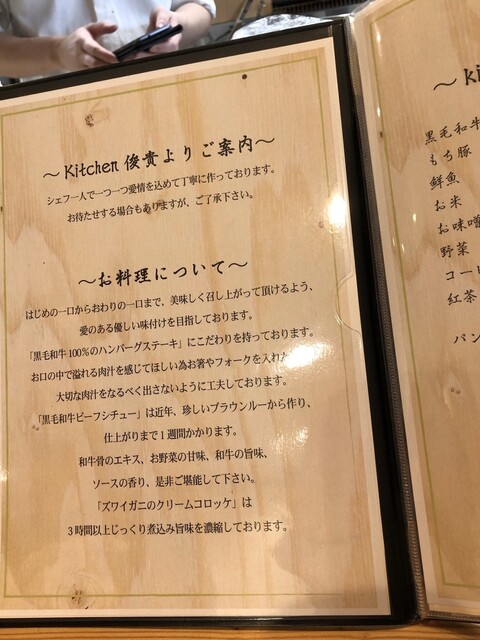 ～Kitchen 俊貴よりご案内～
シェフ一人で一つ一つ愛情を込めて丁寧に作っております。
お待たせする場合もありますが、ご了承下さい。
～お料理について～
はじめの一口からおわりの一口まで、美味しく召し上がって頂けるよう、
愛のある優しい味付けを目指しております。
「黒毛和牛100%のハンバーグステーキ」にこだわりを持っております。
お口の中で溢れる肉汁を感じてほしい為お箸やフォークを入れた
大切な肉汁をなるべく出さないように工夫しております。
「黒毛和牛ビーフシチュー」は近年、珍しいブラウンルーから作り、
仕上がりまで1週間かかります。
和牛骨のエキス、お野菜の甘味、和牛の旨味、
ソースの香り、是非ご堪能して下さい。
「ズワイガニのクリームコロッケ」は
3時間以上じっくり煮込み旨味を濃縮しております。
～ki
黒毛和牛
もち豚
鮮魚
お米
お味噌
野菜
コー
紅茶
パン